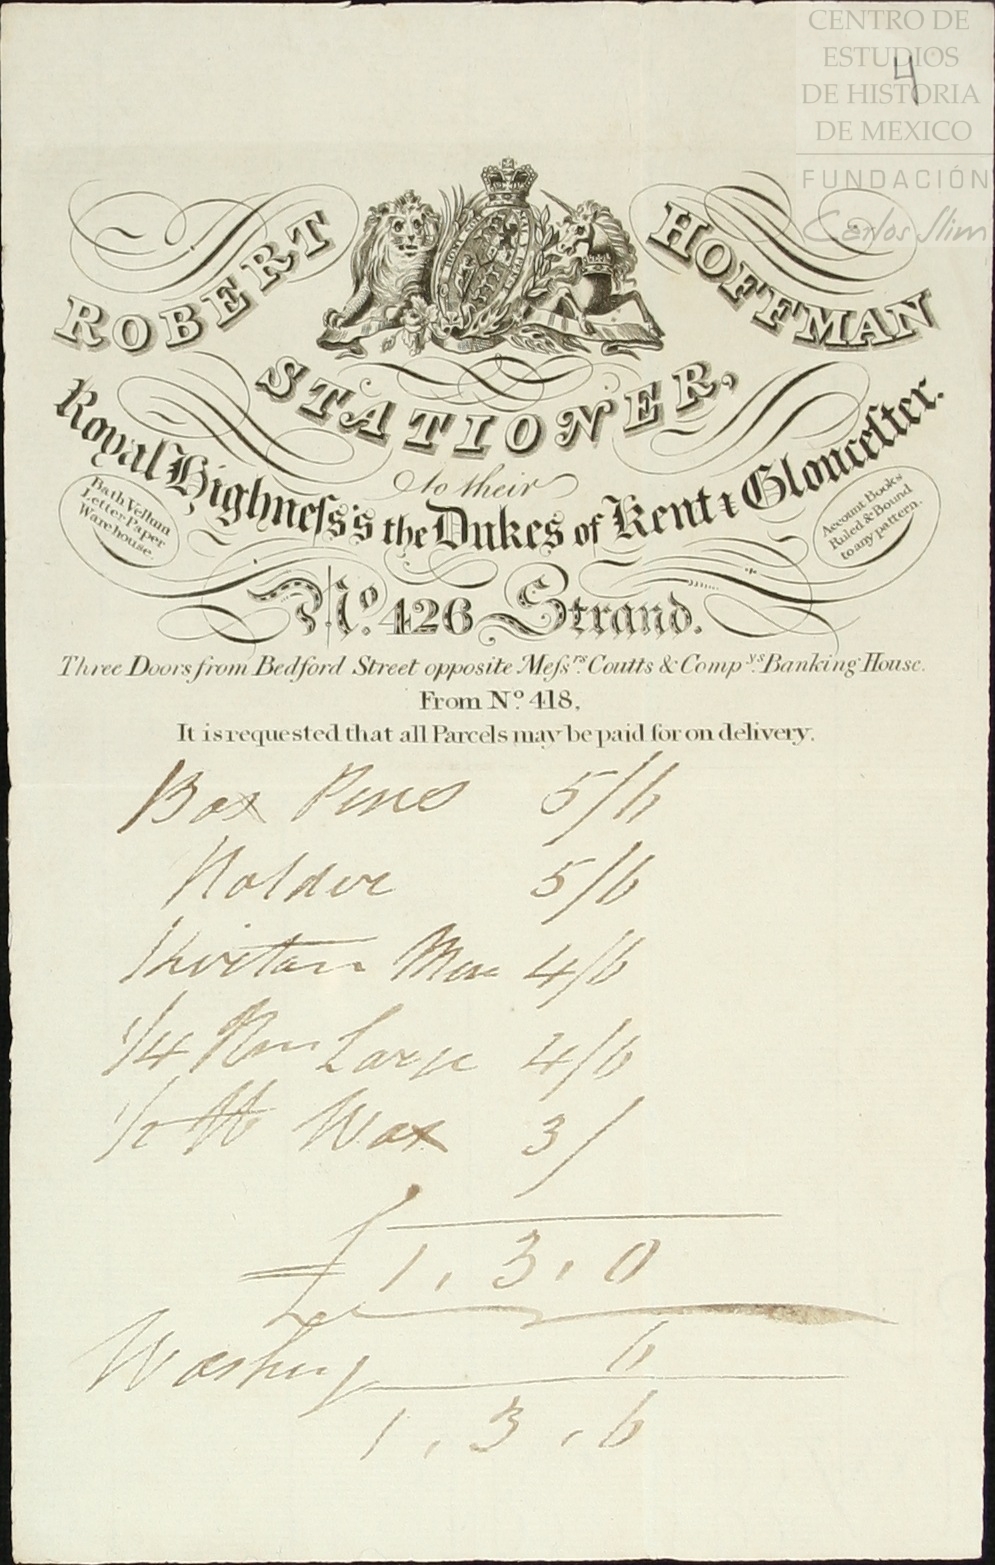 CENTRO DE
ESTUDIOS
DE HISTORIA
DE MEXICO
FUNDACIÓN
Carlos Slim
4
ROBERT HOFFMAN
STATIONER,
to their
Royal Highneſs's the Dukes of Kent & Glouceſter.
Bath Vellum
Letter Paper
Warehouse.
Account Books
Ruled & Bound
to any pattern.
No. 426 Strand.
Three Doors from Bedford Street opposite Meſsrs. Coutts & Compys. Banking House.
From No. 418,
It is requested that all Parcels may be paid for on delivery.
Box Pens 5/6
Holder 5/6
4/6
1/4 Large 4/6
1/2 lb Wax 3/
£1,3,0
6
1,3,6